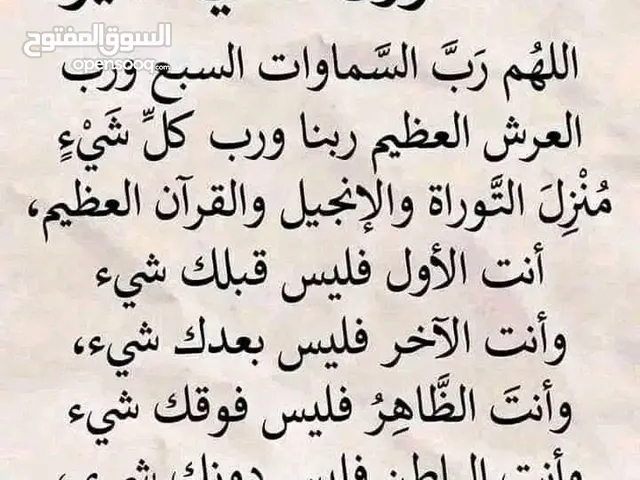 السوق المفتوح
opensooq.com
اللهُم رَبَّ السَّماوات السبع ورب
العرش العظيم ربنا ورب كلِّ شَيْءٍ
مُنْزِلَ التَّوراة والإنجيل والقرآن العظيم،
أنت الأول فليس قبلك شيء
وأنت الآخر فليس بعدك شيء،
وأنتَ الظَّاهِرُ فليس فوقك شيء
وأنت الباطن فليس دونك شيء،